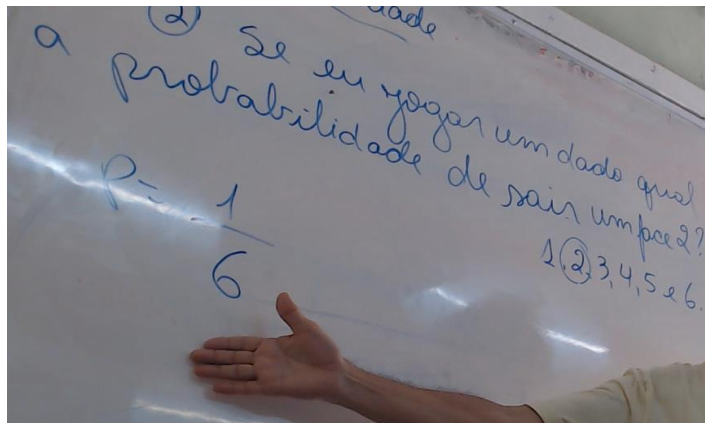 dade
② Se eu jogar um dado qual
a probabilidade de sair um face 2?
1, 2, 3, 4, 5 e 6.
P = 1
6